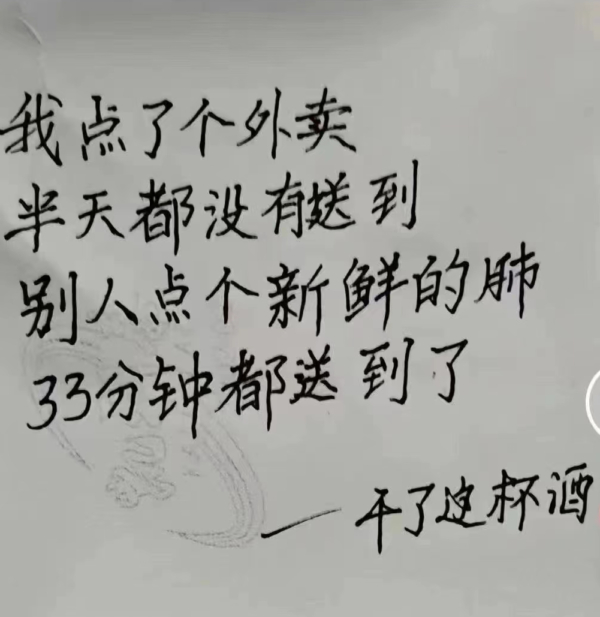 我点了个外卖
半天都没有送到
别人点个新鲜的肺
33分钟都送到了
——干了这杯酒